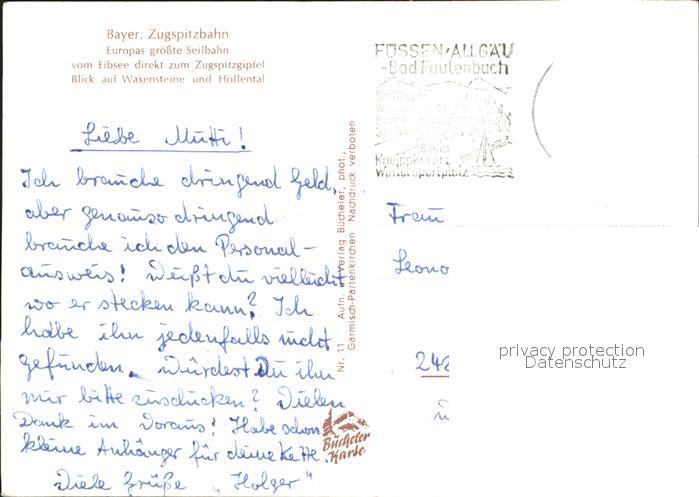 Bayer. Zugspitzbahn
Europas größte Seilbahn
vom Eibsee direkt zum Zugspitzgipfel
Blick auf Waxensteine und Höllental
Liebe Mutti!
Ich brauche dringend Geld,
aber genauso dringend
brauche ich den Personal-
ausweis! Weißt du vielleicht
wo er stecken kann? Ich
habe ihn jedenfalls nicht
gefunden. Würdest Du ihn
mir bitte zuschicken? Vielen
Dank im Voraus! Habe schon
kleine Anhänger für deine Kette.
Viele Grüße „Holger“
Nr. 11 Aufn. u. Verlag Bücheler, phot.,
Garmisch-Partenkirchen Nachdruck verboten
Bücheler
Karte
FÜSSEN/ALLGÄU
-Bad Faulenbach
Kneippkurort
Wintersportplatz
Frau
Leono
242
privacy protection
Datenschutz